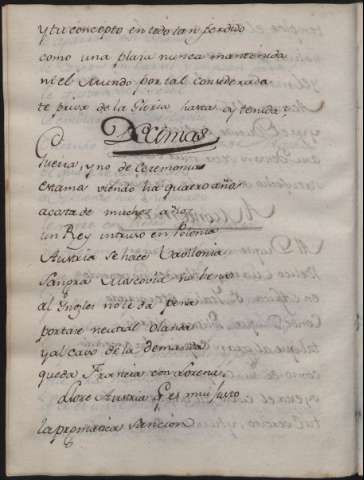 y tu concepto en todo tan perdido
como una plaza nunca mantenida
ni el Mundo por tal considerada
te priva de la Gloria hasta aj tenida;
Decimas
Guerra, y no de Ceremonia
estamos viendo ha quatro años
a costa de muchos
un Rey intruso en Polonia
Austria se hace Babilonia
Sangra Moscovia
al Ingles no le da pena
portase neutral olanda
y al cavo de la demanda
queda Francia con Lorena.
Llore Austria q es muj justo
la pragmatica sancion